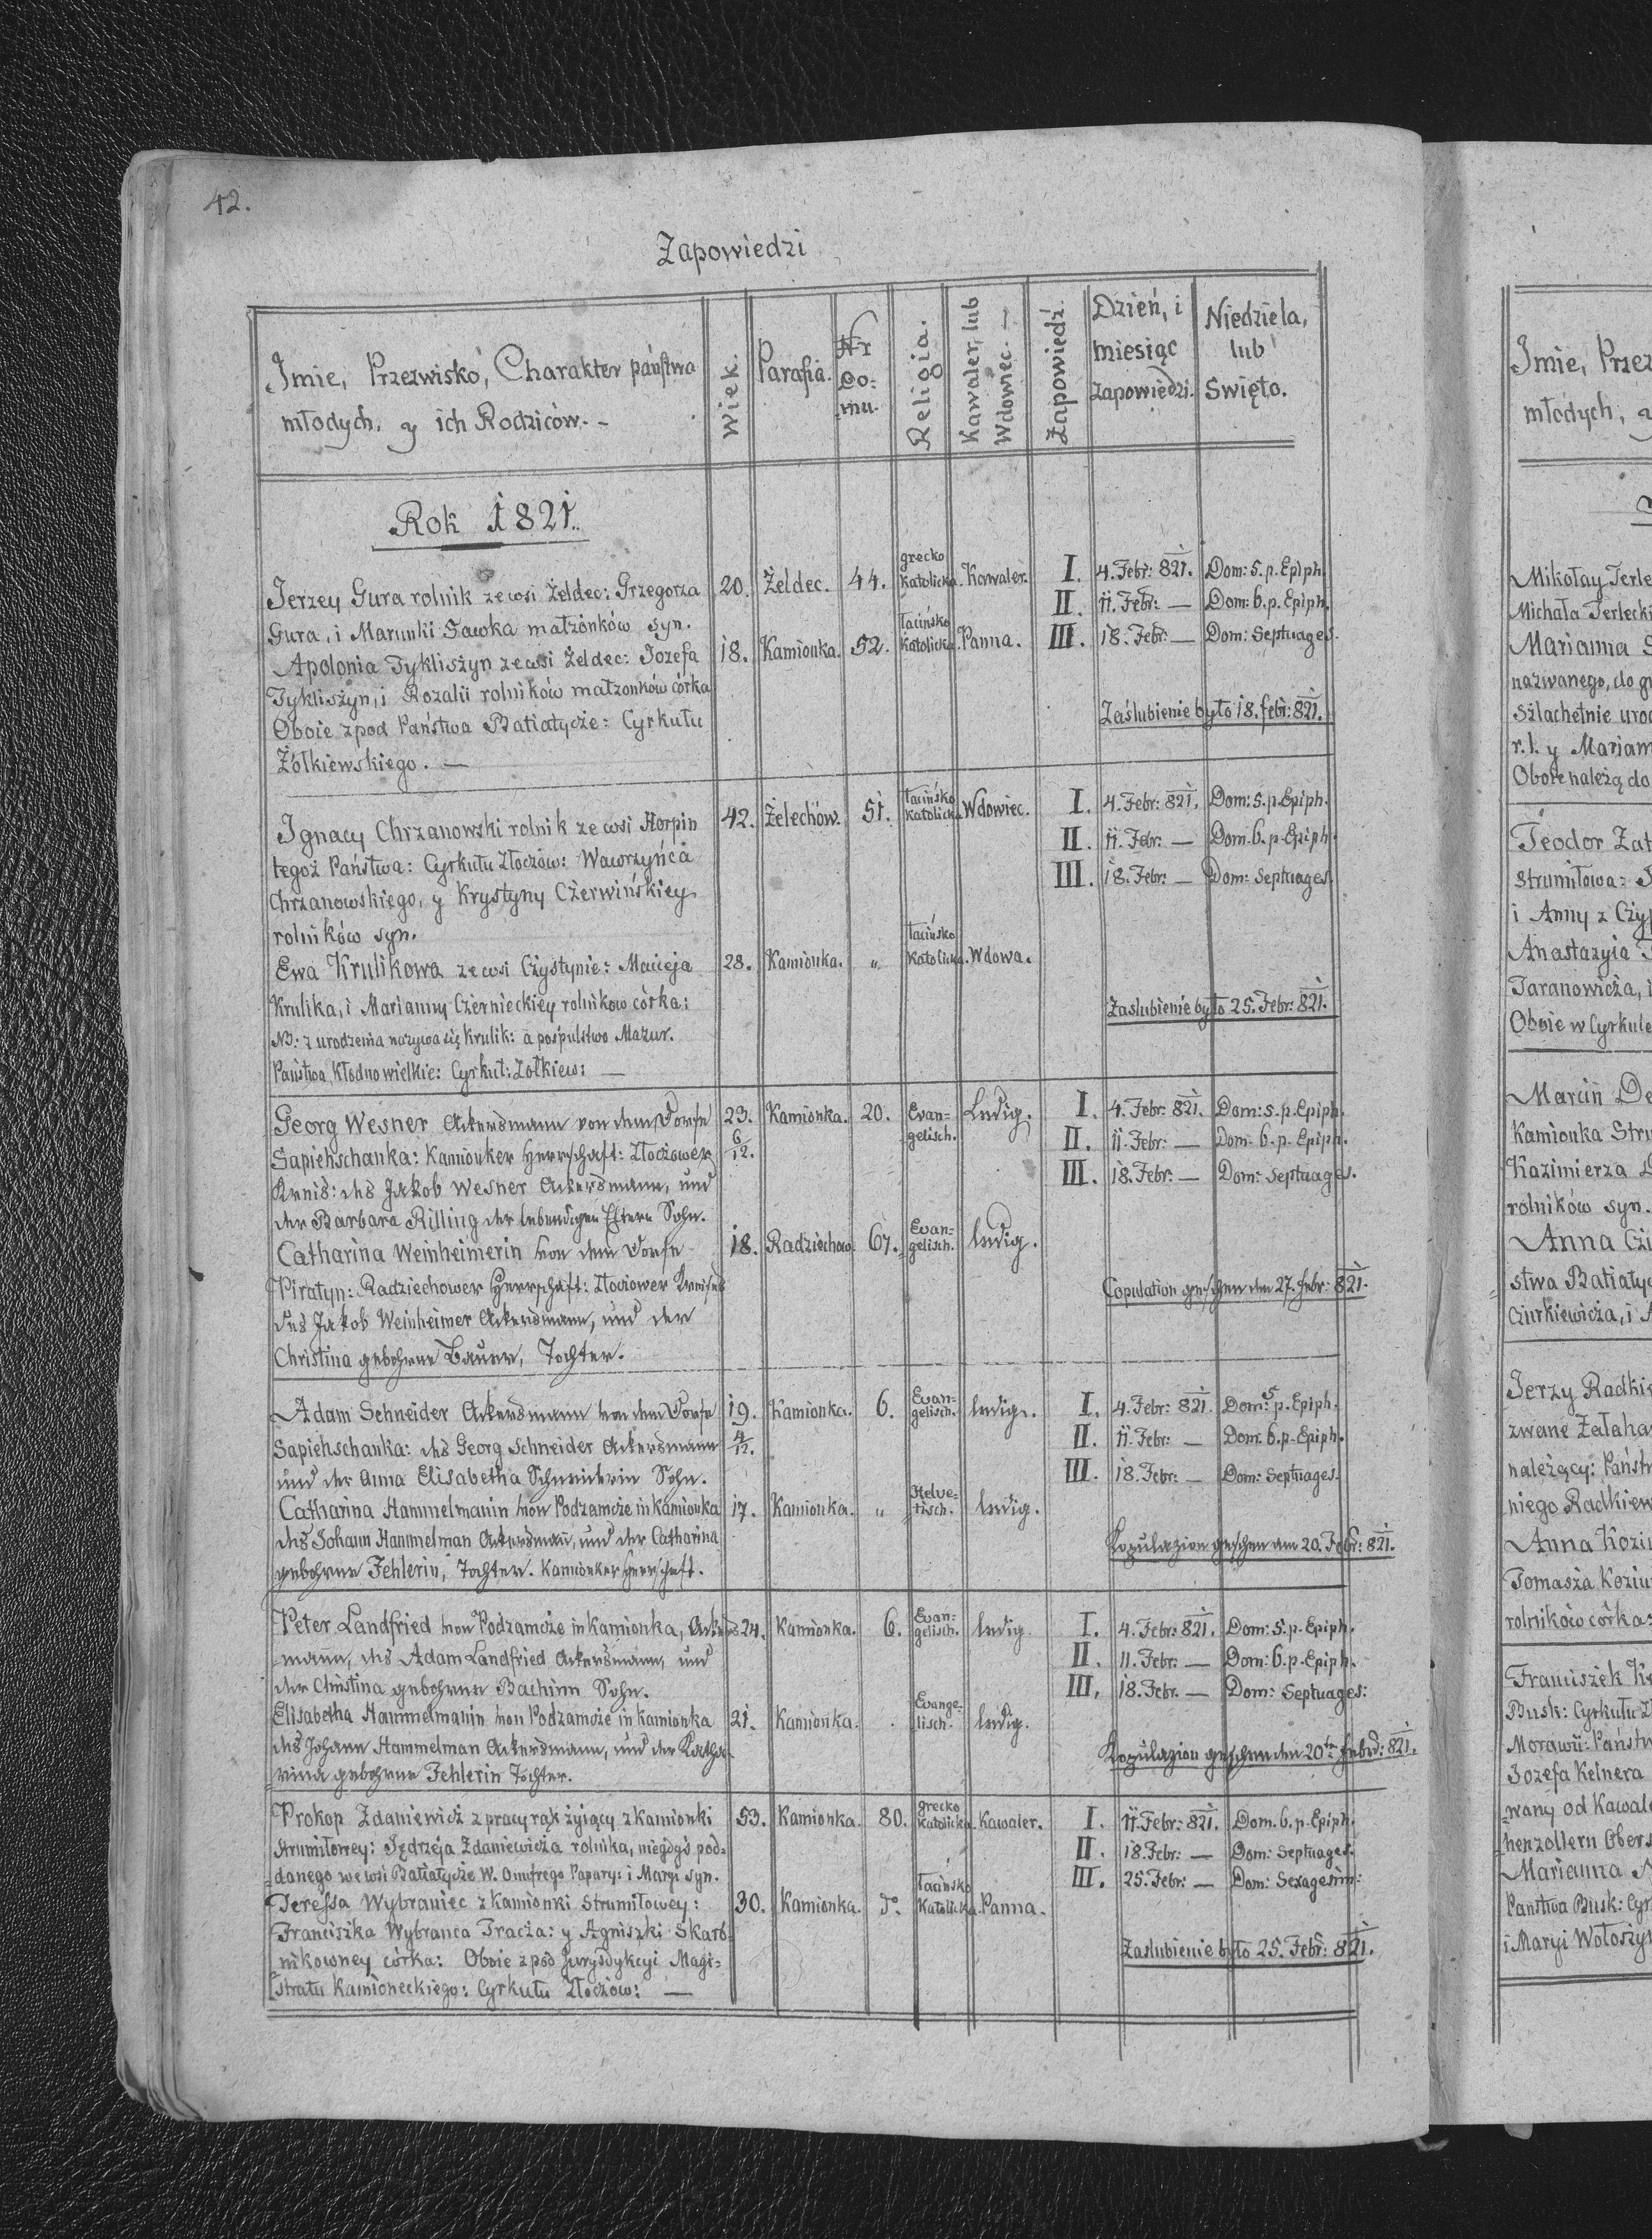 42.
Zapowiedzi
Jmie, Przezwisko, Charakter państwa
młodych, y ich Rodziców. -
Wiek.
Parafia.
Nr Do: mu.
Religia.
Kawaler, lub Wdowiec. —
Zapowiedź.
Dzień, i miesiąc zapowiedzi.
Niedziela, lub Swięto.
Rok 1821.
Jerzey Gura rolnik ze wsi Żeldec: Grzegorza 20. Żeldec. 44. grecko katolicka. Kawaler. I. 4. Febr: 821. Dom: 5. p. Epiph.
Gura, i Marunki Sawka małżonków syn. II. 11. Febr: — Dom: 6. p. Epiph.
Apolonia Tykliszyn ze wsi Żeldec: Jozefa 18. Kamionka. 52. łacińsko katolicka. Panna. III. 18. Febr: — Dom: Septuages.
Tykliszyn, i Rozalii rolników małzonków córka
Oboie zpod Państwa Batiatycze: Cyrkułu Zaślubienie było 18. febr: 821.
Żółkiewskiego. —
Jgnacy Chrzanowski rolnik ze wsi Horpin 42. Żelechów. 51. łacińsko katolicka. Wdowiec. I. 4. Febr: 821. Dom: 5. p. Epiph.
tegoż Państwa: Cyrkułu Złoczów: Wawrzyńca II. 11. Febr: — Dom. 6. p. Epiph.
Chrzanowskiego, y Krystyny Czerwińskiey III. 18. Febr: — Dom: Septuages.
rolników syn.
Ewa Krulikowa ze wsi Czystynie: Macieja 28. Kamionka. „ łacińsko katolicka. Wdowa.
Krulika, i Marianny Czernieckiey rolników córka: Zaslubienie było 25. Febr: 821.
NB: z urodzenia nazywa się Krulik: a pospulstwo Mazur.
Państwa Kłodno wielkie: Cyrkuł: Żołkiew: —
Georg Wesner Ackersmann von dem Dorfe 23. Kamionka. 20. Evan= gelisch. Ledig. I. 4. Febr: 821. Dom: 5. p. Epiph.
Sapiehschanka: Kamionker Herrschaft: Złoczower 6/12. II. 11. Febr: — Dom. 6. p. Epiph.
Kreis: des Jakob Wesner Ackersmann, und III. 18. Febr: — Dom: Septuages.
der Barbara Rilling der lebendigen Eltern Sohn.
Catharina Weinheimerin von dem Dorfe 18. Radziechow. 67. Evan= gelisch. ledig.
Piratyn: Radziechower Herrschaft: Złoczower Kreises Copulation geschen den 27. febr: 821.
des Jakob Weinheimer Ackersmann, und der
Christina gebohrne Bauer, Tochter.
Adam Schneider Ackersmann von dem Dorfe 19. Kamionka. 6. Evan= gelisch. ledig. I. 4. Febr: 821. Dom: 5 p. Epiph.
Sapiehschanka: des Georg Schneider Ackersmann 4/12. II. 11. Febr: — Dom. 6. p. Epiph.
und der Anna Elisabetha Schneiderin Sohn. III. 18. Febr: — Dom: Septuages.
Catharina Hammelmanin von Podzamcze in Kamionka 17. Kamionka. „ Helve= tisch. ledig.
des Johann Hammelman Ackersmañ, und der Catharina Kopulazion geschen am 20. Febr: 821.
gebohrne Fehlerin, Tochter. Kamionker Herrschaft.
Peter Landfried von Podzamcze in Kamionka, Ackers= 24. Kamionka. 6. Evan= gelisch. ledig I. 4. Febr: 821. Dom: 5. p. Epiph.
mann, des Adam Landfried Ackersmann, und II. 11. Febr: — Dom: 6. p. Epiph.
der Christina gebohrne Bachinn Sohn. III. 18. Febr. — Dom: Septuages:
Elisabetha Hammelmanin von Podzamcze in Kamionka 21. Kamionka. . Evange= lisch. ledig.
des Johann Hammelman Ackersmann, und der Katha= Kopulazion geschen den 20ten Febr: 821.
rina gebohrne Fehlerin Tochter.
Prokop Zdaniewicz z pracy rąk żyiący z Kamionki 53. Kamionka. 80. grecko katolicka. Kawaler. I. 11. Febr: 821. Dom. 6. p. Epiph.
Strumiłowey: Jędrzeja Zdaniewicza rolnika, niegdyś pod= II. 18. Febr: — Dom: Septuages.
danego we wsi Batiatycze W. Onufrego Papary: i Maryi syn. III. 25. Febr: — Dom: Sexagesim:
Teressa Wybraniec z Kamionki Strumiłowey: 30. Kamionka. do łacińsko katolicka. Panna.
Franciszka Wybranca Tracza: y Agniszki Skarb=
nikowney córka: Oboie z pod Jurysdykcyi Magi= Zaslubienie było 25. Febr: 821.
stratu Kamioneckiego: Cyrkułu Złoczow: —
Jmie, Prze
młodych,
Mikołay Terle
Michała Terlecki
Marianna
nazwanego, do g
Szlachetnie uro
r. l. y Mariam
Oboie należą do
Teodor Zat
Strumiłowa:
i Anny z Czy
Anastazyia
Taranowicza, i
Oboie w Cyrkule
Marcin De
Kamionka Stru
Kazimierza
rolników syn.
Anna Czi
stwa Batiaty
Cziurkiewicza, i
Jerzy Radki
zwane Załaha
należący: Państ
niego Radkiew
Anna Kozi
Tomasza Koziu
rolników córka:
Franciszek K
Busk: Cyrkułu
Morawii: Państw
Jozefa Kelnera
wany od Kawal
henzollern Ober
Marianna
Państwa Busk: Cyr
i Maryi Wołoszy